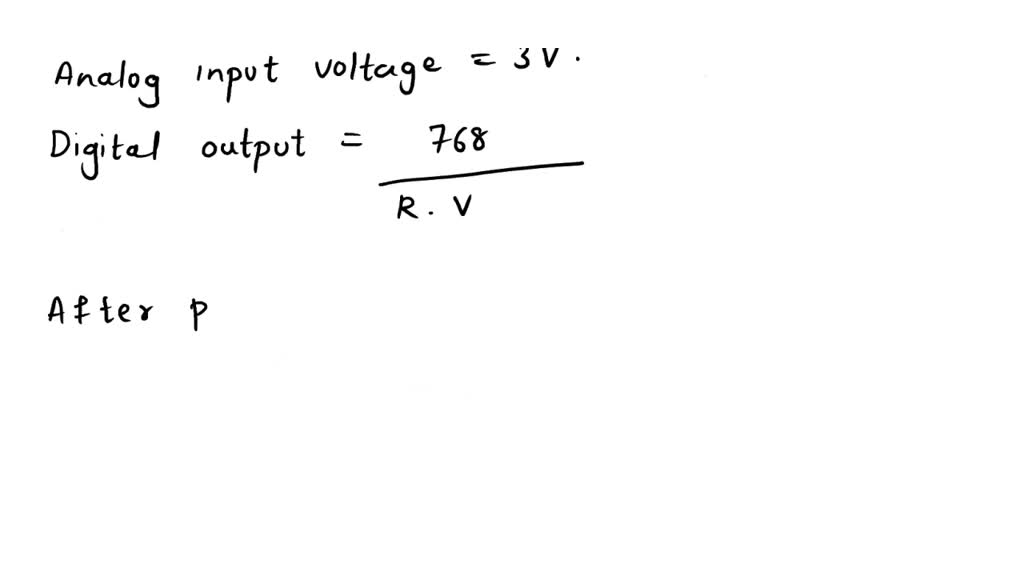 Analog input voltage = 3V.
Digital output = 768
R. V
After p